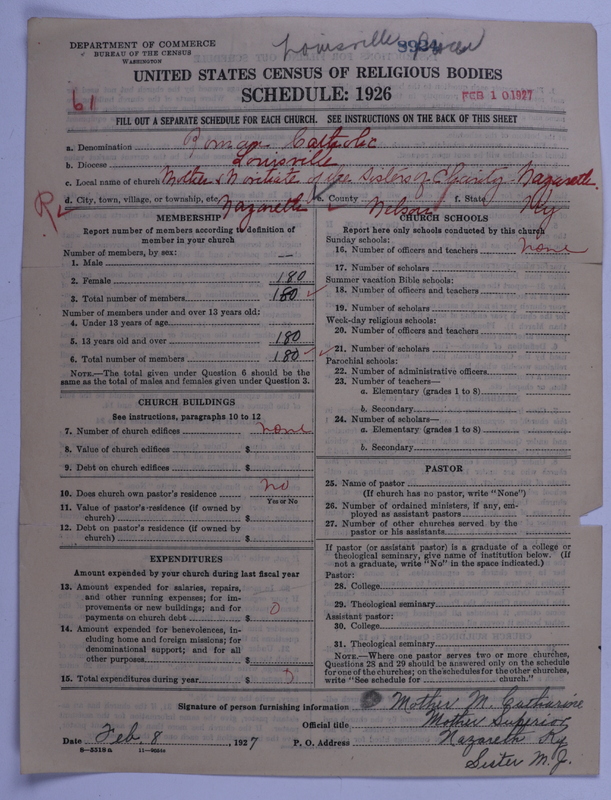 DEPARTMENT OF COMMERCE
BUREAU OF THE CENSUS
WASHINGTON
Louisville
UNITED STATES CENSUS OF RELIGIOUS BODIES
SCHEDULE: 1926
61
FEB 10 1927
FILL OUT A SEPARATE SCHEDULE FOR EACH CHURCH. SEE INSTRUCTIONS ON THE BACK OF THIS SHEET
a. Denomination Roman Catholic
b. Diocese Louisville
c. Local name of church Mother & Novitiate of the Sisters of Charity Nazareth.
d. City, town, village, or township, etc. Nazareth e. County Nelson f. State Ky
R
MEMBERSHIP
Report number of members according to definition of
member in your church
Number of members, by sex:
1. Male —
2. Female 180
3. Total number of members 180
Number of members under and over 13 years old:
4. Under 13 years of age
5. 13 years old and over 180
6. Total number of members 180
NOTE.—The total given under Question 6 should be the
same as the total of males and females given under Question 3.
CHURCH BUILDINGS
See instructions, paragraphs 10 to 12
7. Number of church edifices none
8. Value of church edifices $
9. Debt on church edifices $
10. Does church own pastor's residence no
Yes or No
11. Value of pastor's residence (if owned by
church) $
12. Debt on pastor's residence (if owned by
church) $
EXPENDITURES
Amount expended by your church during last fiscal year
13. Amount expended for salaries, repairs,
and other running expenses; for im-
provements or new buildings; and for
payments on church debt $ 0
14. Amount expended for benevolences, in-
cluding home and foreign missions; for
denominational support; and for all
other purposes $
15. Total expenditures during year $ 0
CHURCH SCHOOLS
Report here only schools conducted by this church
Sunday schools:
16. Number of officers and teachers none
17. Number of scholars
Summer vacation Bible schools:
18. Number of officers and teachers
19. Number of scholars
Week-day religious schools:
20. Number of officers and teachers
21. Number of scholars
Parochial schools:
22. Number of administrative officers
23. Number of teachers—
a. Elementary (grades 1 to 8)
b. Secondary
24. Number of scholars—
a. Elementary (grades 1 to 8)
b. Secondary
PASTOR
25. Name of pastor
(If church has no pastor, write "None")
26. Number of ordained ministers, if any, em-
ployed as assistant pastors
27. Number of other churches served by the
pastor or his assistants
If pastor (or assistant pastor) is a graduate of a college or
theological seminary, give name of institution below. (If
not a graduate, write "No" in the space indicated.)
Pastor:
28. College
29. Theological seminary
Assistant pastor:
30. College
31. Theological seminary
NOTE.—Where one pastor serves two or more churches,
Questions 28 and 29 should be answered only on the schedule
for one of the churches; on the schedules for the other churches,
write "See schedule for church."
Signature of person furnishing information Mother M. Catharine
Official title Mother Superior
Date Feb. 8, 1927 P. O. Address Nazareth Ky
8-5518a
Sister M. J.